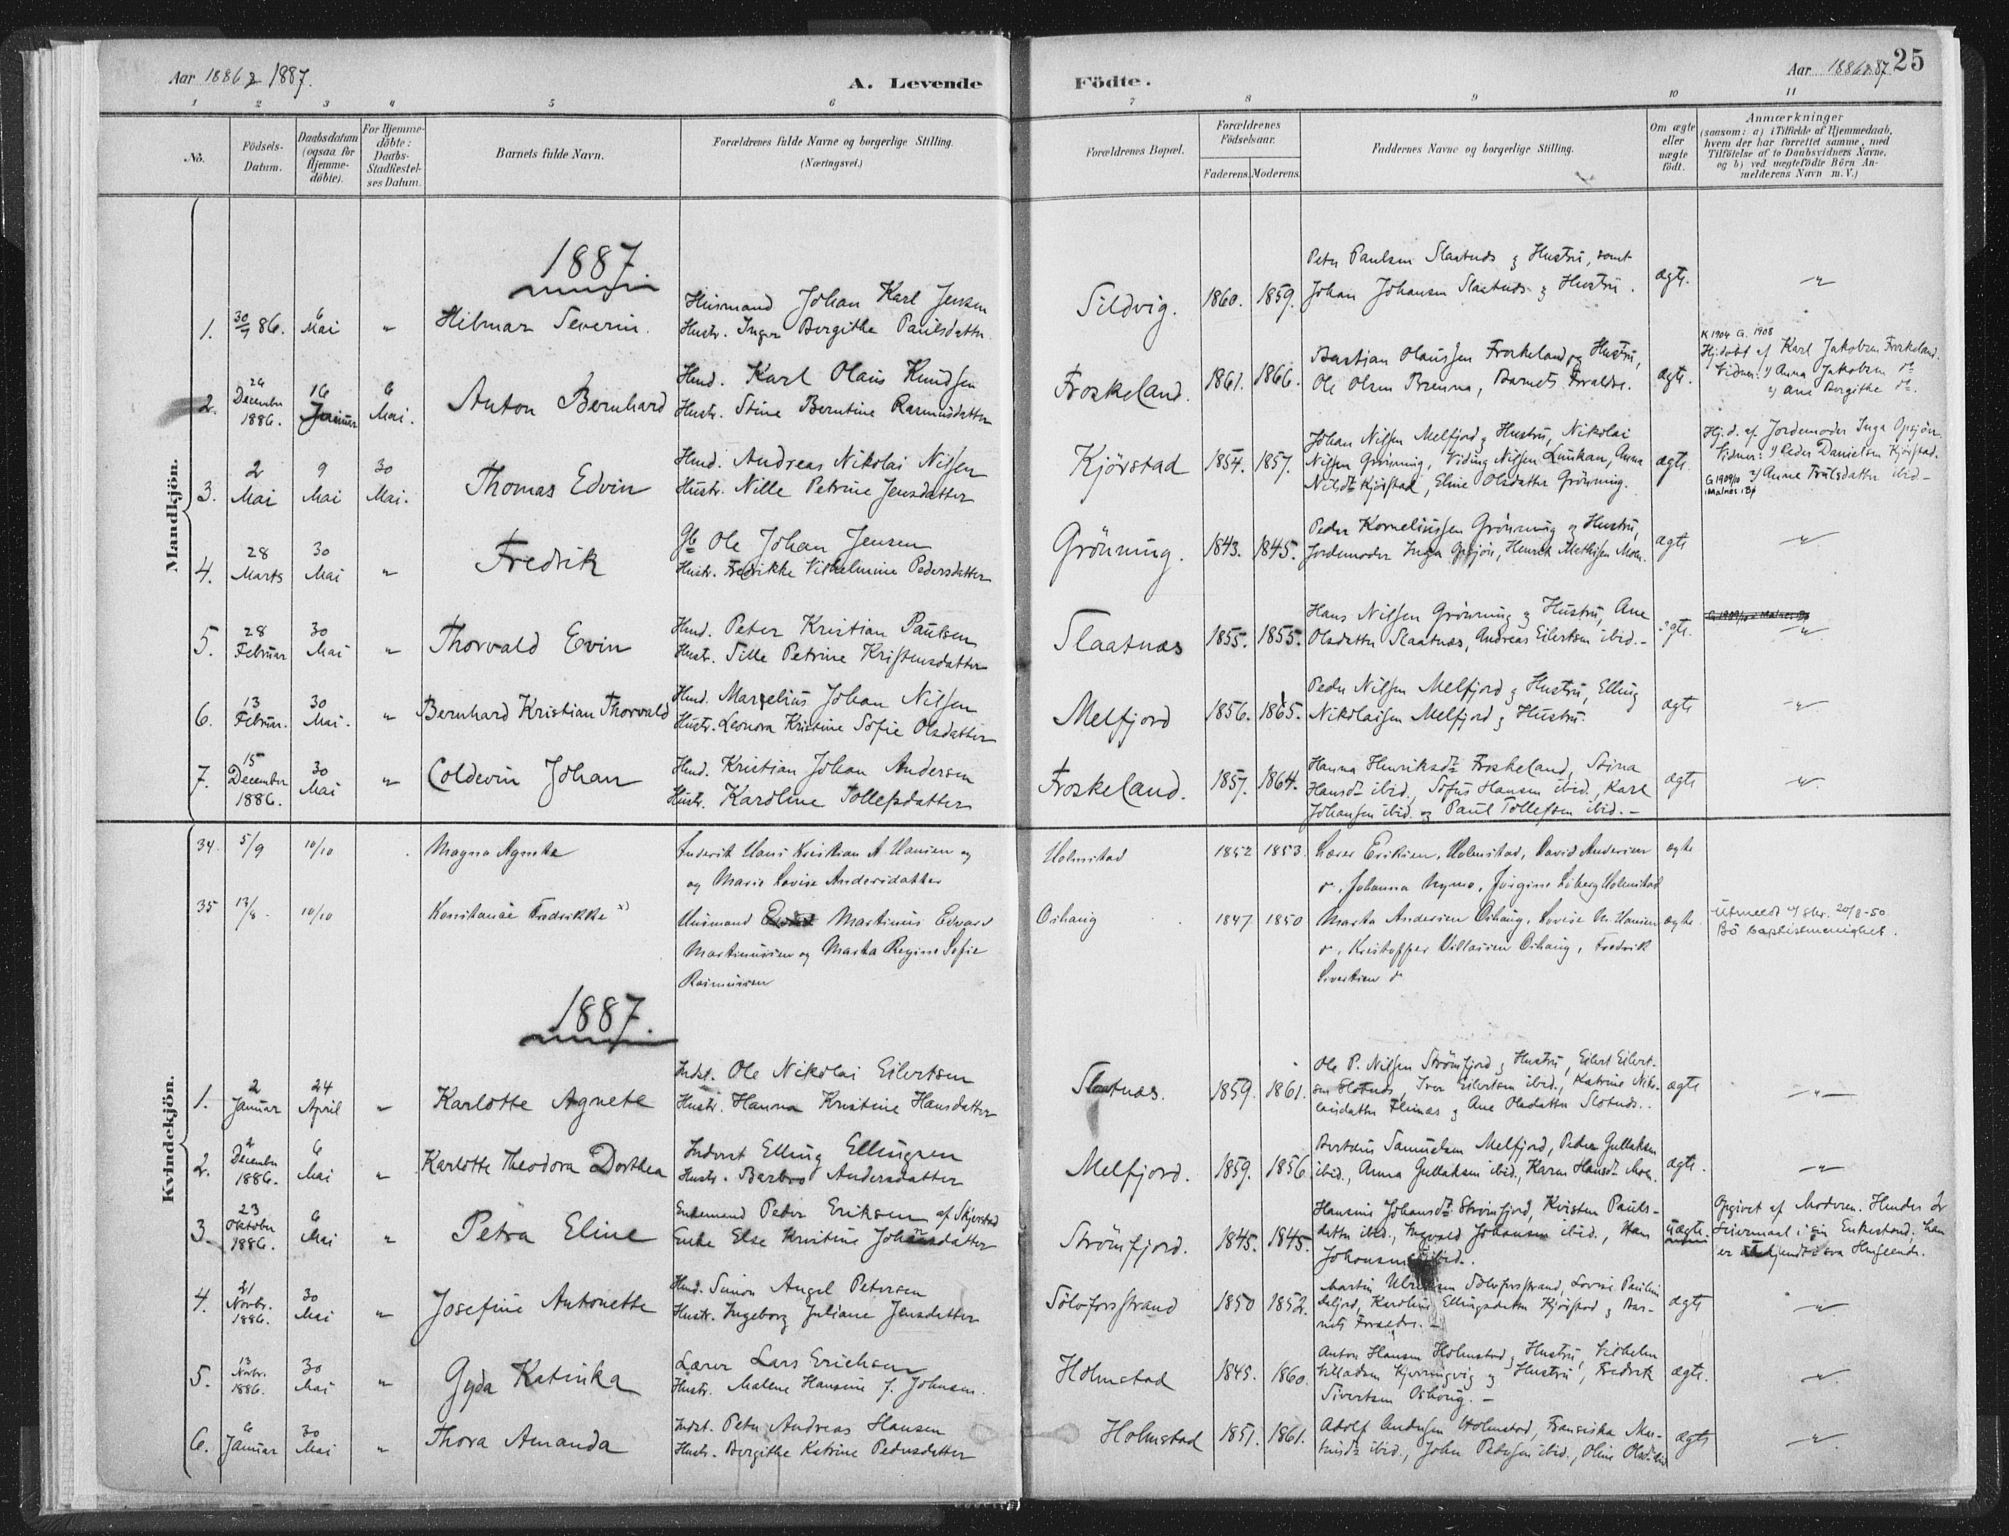 Aar 1886 & 1887.
A. Levende
Födte.
Aar 1886 & 87
25
1 2 3 4 5 6 7 8 9 10 11
No.
Födsels-Datum.
Daabsdatum (ogsaa for Hjemme-döbte).
For Hjemme-döbte: Daabs-Stadfæstel-ses Datum.
Barnets fulde Navn.
Forældrenes fulde Navne og borgerlige Stilling. (Næringsvei.)
Forældrenes Bopæl.
Forældrenes Födselsaar.
Faderens. Moderens.
Faddernes Navne og borgerlige Stilling.
Om ægte eller uægte födt.
Anmærkninger
(saasom: a) i Tilfælde af Hjemmedaab,
hvem der har forrettet samme, med
Tilföielse af to Daabsvidners Navne,
og b) ved uægtefödte Börn An-
melderens Navn m. V.)
Mandkjön.
1887.
1. 30/9 86. 6 Mai " Hilmar Severin.
Huusmand Johan Karl Jensen
Hustr. Inger Bergithe Paulsdatter
Sildvig. 1860. 1859.
Peter Paulsen Slaatnæs & Hustru, samt
Johan Johansen Slaatnæs & Hustru.
ægte.
2. 26 December 1886. 16 Januar 6 Mai. Anton Bernhard
Hmd. Karl Olaus Knudsen
Hustr. Stine Berntine Rasmusdatter
Froskeland. 1861. 1866.
Bastian Olaussen Froskeland og Hustru,
Ole Olsen Brenna, Barnets Forældre.
ægte.
K 1904 G. 1908
Hj.döbt af Karl Jakobsen Froskeland.
Vidner: 1) Anna Jakobsen do
2) Ane Bergithe do.
3. 2 Mai 9 Mai 30 Mai. Thomas Edvin
Hmd. Andreas Nikolai Nilsen
Hustr. Nille Petrine Jensdatter
Kjörstad 1854. 1857.
Johan Nilsen Melfjord & Hustru, Nikolai
Nilsen Grönning, Viding Nilsen Laukan, Anna
Nilsdtr Kjörstad, Eline Olsdatter Grönning.
ægte
Hj.d. af Jordemoder Inga Opsjön.
Vidner: 1) Peder Danielsen Kjörstad.
2) Anne Trulsdatter ibid-
G 1909/10 i Malnes i Bø
4. 28 Marts 30 Mai " Fredrik
Gb Ole Johan Jensen
Hustr. Fredrikke Vilhelmine Pedersdatter
Grönning. 1843. 1845.
Peder Korneliussen Grönning og Hustru,
Jordemoder Inga Opsjön, Henrik Mathisen Moen.
ægte
5. 28 Februar 30 Mai " Thorvald Evin
Hmd. Peter Kristian Paulsen
Hustr. Sille Petrine Kristensdatter
Slaatnæs 1855. 1855.
Hans Nilsen Grönning & Hustru, Ane
Olsdatter Slaatnæs, Andreas Eilertsen ibid.-
ægte.
G 1909/10 i Malnes i Bø
6. 13 Februar. 30 Mai. " Bernhard Kristian Thorvald
Hmd. Marselius Johan Nilsen
Hustr. Leonora Kristine Sofie Olsdatter
Melfjord 1856. 1865.
Peder Nilsen Melfjord & Hustru, Elling
Nikolaisen Melfjord & Hustru.
ægte
7. 15 December 1886. 30 Mai " Coldevin Johan
Hmd. Kristian Johan Andersen
Hustr. Karoline Tollefsdatter
Froskeland. 1857. 1864.
Hanna Henriksdtr Froskeland, Stina
Hansdtr ibid., Sofus Hansen ibid., Karl
Johansen ibid. og Paul Tollefsen ibid.-
ægte
Kvindekjön.
34. 5/9 10/10 Magna Agneta
Inderst Hans Kristian A Hansen og
og Marie Lovise Andersdatter
Holmstad 1852 1853
Lærer Eriksen, Holmstad, David Andersen
do, Johanna Nymo, Jörgine Söberg Holmstad
ægte
35 13/8. 10/10 Konstanse Fredrikke x)
Husmand Martinus Edvard
Martinussen og Marta Regine Sofie
Rasmussen
Oshaug 1847 1850
Marta Andersen Oshaug, Lovise M. Hansen
do, Kristoffer Villassen Oshaug, Fredrik
Sivertsen do
ægte.
Utmeldt 20/8-50.
Bø baptistmenighet.
1887.
1. 2 Januar 24 April " Karlotte Agnete
Indst. Ole Nikolai Eilertsen
Hustr. Hanna Kristine Hansdatter
Slaatnæs. 1859. 1861.
Ole P. Nilsen Strömfjord & Hustru, Eilert Eilert-
sen Slotnæs, Iver Eilertsen ibid., Katrine Niko-
laisdatter & Ane Olsdatter Slotnæs.
ægte
2. 2 December 1886. 6 Mai " Karlotte Theodora Dorthea
Inderst Elling Ellingsen
Hustr. Barbro Andersdatter
Melfjord. 1859. 1856
Samuelsen Melfjord, Peder Gullaksen
ibid., Anna Gullaksen ibid., Karen Hansdtr Moen.
ægte.
3 23 Oktober 1886. 6 Mai " Petra Eline
Enkemand Peder Eriksen af Skjerstad
Enke Else Kristine Johansdatter
Strömfjord. 1845. 1845.
Hansine Johansdtr Strömfjord, Kristen Pauls-
datter ibid., Ingvald Johansen ibid., Hans
Johansen ibid.
uægte.
Opgivet af Moderen. Hendes 2
Leiermaal i sin Enkestand, han
er
4. 21 Novbr. 1886. 30 Mai " Josefine Antonette
Hmd. Simon Angel Petersen
Hustr. Ingeborg Juliane Jensdatter
Sölvforsstrand 1850 1852.
Martin Ulriksen Sölvforsstrand, Lovise Pauline
Kjörstad & Bar-
nets Forældre.-
ægte
5. 13 Novbr. 1886. 30 Mai " Gyda Katinka
Lærer Lars Erichsen
Hustr. Malene Hansine f. Johnsen.
Holmstad 1845. 1860.
Anton Hansen Holmstad & Hustru, Vilhelm
Villadsen Kjerringvig & Hustru, Fredrik
Sivertsen Oshaug.-
ægte.
6. 6 Januar 30 Mai " Thora Amanda
Indst. Peter Andreas Hansen
Hustr. Bergithe Katrine Pedersdatter
Holmstad 1851. 1861.
Adolf Andersen Holmstad, Fransiska Mar-
ibid., John Pedersen ibid., Oline Olsdtr ibid
ægte